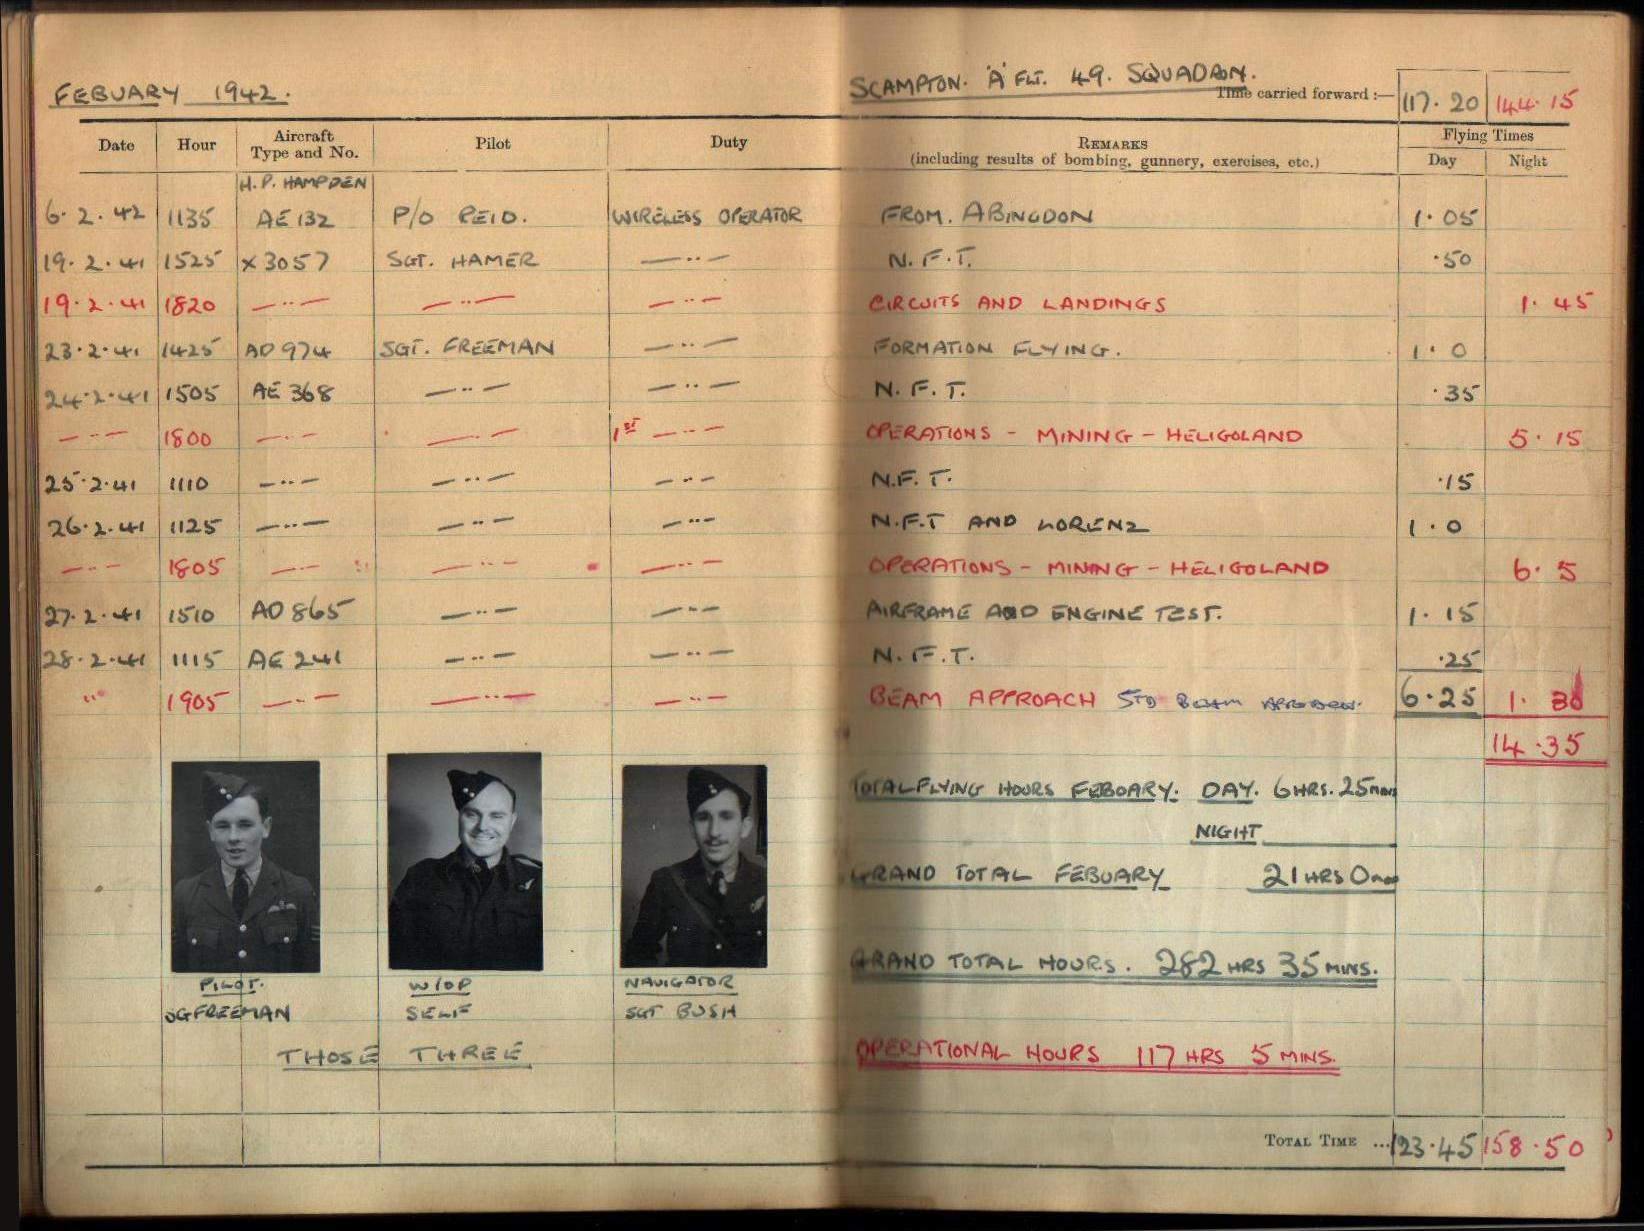 FEBUARY 1942.
SCAMPTON. 'A' FLT. 49. SQUADRON.
Time carried forward :— 117.20 144.15
Date Hour Aircraft Type and No. Pilot Duty REMARKS (including results of bombing, gunnery, exercises, etc.) Flying Times Day Night
H.P. HAMPDEN
6.2.42 1135 AE 132 P/O REID. WIRELESS OPERATOR FROM. ABINGDON 1.05
19.2.41 1525 X3057 SGT. HAMER —··— N.F.T. .50
19.2.41 1820 —··— —··— —··— CIRCUITS AND LANDINGS 1.45
23.2.41 1425 AD974 SGT. FREEMAN —··— FORMATION FLYING. 1.0
24.2.41 1505 AE 368 —··— —··— N.F.T. .35
—··— 1800 —··— —··— 1ST —··— OPERATIONS - MINING - HELIGOLAND 5.15
25.2.41 1110 —··— —··— —··— N.F.T. .15
26.2.41 1125 —··— —··— —··— N.F.T AND LORENZ 1.0
—··— 1805 —··— —··— —··— OPERATIONS - MINING - HELIGOLAND 6.5
27.2.41 1510 AD 865 —··— —··— AIRFRAME AND ENGINE TEST. 1.15
28.2.41 1115 AE 241 —··— —··— N.F.T. .25
" 1905 —··— —··— —··— BEAM APPROACH STD BEAM APPROACH. 6.25 1.30
14.35
TOTAL FLYING HOURS FEBUARY. DAY. 6HRS. 25MINS
NIGHT
GRAND TOTAL FEBUARY 21HRS 0
GRAND TOTAL HOURS. 282 HRS 35 MINS.
PILOT. W/OP NAVIGATOR
SGFREEMAN SELF SGT BUSH
THOSE THREE
OPERATIONAL HOURS 117 HRS 5 MINS.
TOTAL TIME ... 123.45 158.50